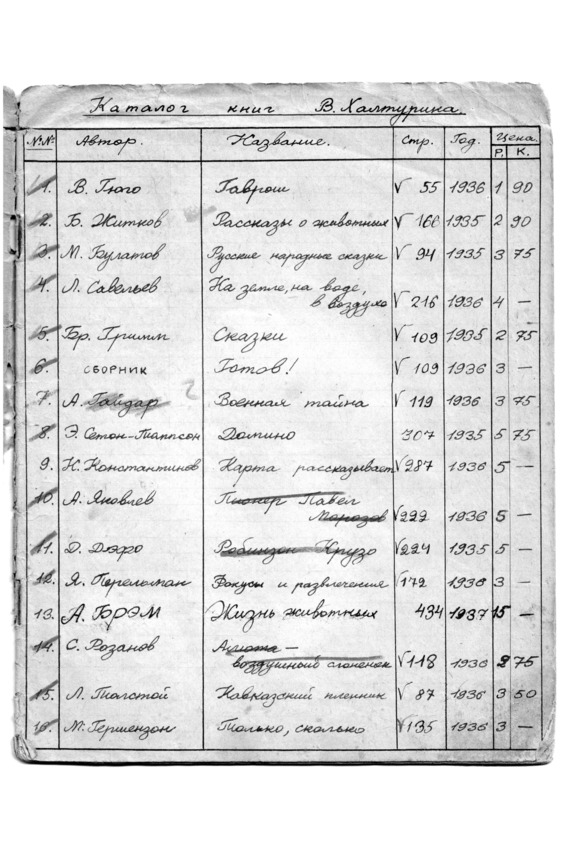 Каталог книг В. Халтурина.
№№ Автор. Название. Стр. Год. Цена.
Р. К.
1. В. Гюго Гаврош V 55 1936 1 90
2. Б. Житков Рассказы о животных V 166 1935 2 90
3. М. Булатов Русские народные сказки V 94 1935 3 75
4. Л. Савельев На земле, на воде,
в воздухе V 216 1936 4 —
5. Бр. Гримм Сказки V 109 1935 2 75
6. СБОРНИК Готов! V 109 1936 3 —
7. А. Гайдар ? Военная тайна V 119 1936 3 75
8. Э. Сетон-Томпсон Домино 307 1935 5 75
9. Н. Константинов Карта рассказывает V 287 1936 5 —
10. А. Яковлев Пионер Павел
Морозов V 222 1936 5 —
11. Д. Дэфо Робинзон Крузо V 224 1935 5 —
12. Я. Перельман Фокусы и развлечения V 172 1936 3 —
13. А. БРЭМ Жизнь животных 434 1937 15 —
14. С. Розанов —
воздушный слоненок V 118 1936 2 75
15. Л. Толстой Кавказский пленник V 87 1936 3 50
16. М. Гершензон Только, сколько V 135 1936 3 —